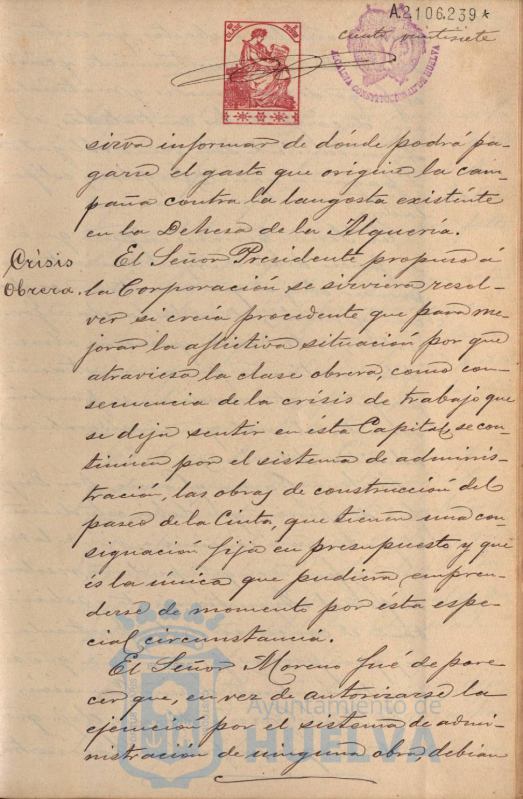 A.2106.239*
ciento veintisiete
ALCALDIA CONSTITUCIONAL DE HUELVA
sirva informar de dónde podrá pa-
garse el gasto que origine la cam-
paña contra la langosta existente
en la Dehesa de la Alquería.
Crisis
Obrera.
El Señor Presidente propuso á
la Corporación se sirviera resol-
ver si creía procedente que para me-
jorar la aflictiva situación por que
atraviesa la clase obrera, como con-
secuencia de la crisis de trabajo que
se deja sentir en ésta Capital, se con-
tinuen por el sistema de adminis-
tración, las obras de construcción del
paseo de la Cinta, que tienen una con-
signación fija en presupuesto y que
és la única que pudiera empren-
derse de momento por ésta espe-
cial circunstancia.
El Señor Moreno fué de pare-
cer que, en vez de autorizarse la
ejecución por el sistema de admi-
nistración de ninguna obra, debian
Ayuntamiento de
HUELVA